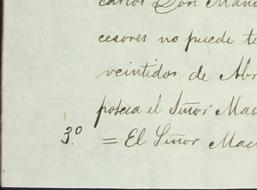 carlos Don Manu
cesores no puede te
veintidos de Abr
posea el Señor Mac
3º = El Señor Mac